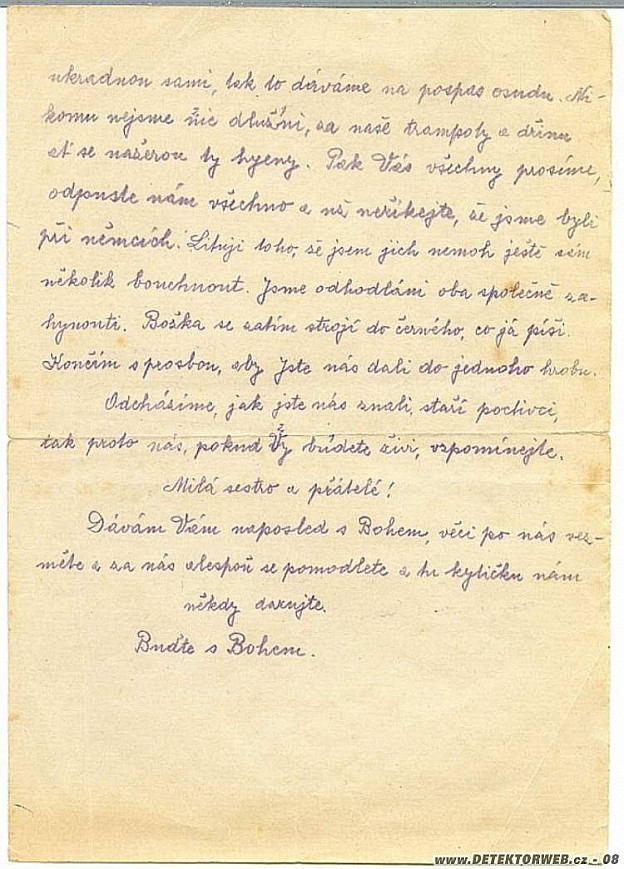 ukradnou sami, tak to dáváme na pospas osudu. Ni-
komu nejsme nic dlužni, za naše trampoty a dřinu
ať se nažerou ty hyeny. Pak Vás všechny prosíme,
odpusťte nám všechno a už neříkejte, že jsme byli
při němcích. Lituji toho, že jsem jich nemoh ještě sám
několik bouchnout. Jsme odhodláni oba společně za-
hynouti. Božka se zatím strojí do černého, co já píši.
Končím s prosbou, aby jste nás dali do jednoho hrobu.
Odcházíme, jak jste nás znali, staří poctivci,
tak proto nás, pokud Vy budete živi, vzpomínejte.
Milá sestro a přátelé!
Dávám Vám naposled s Bohem, věci po nás vez-
měte a za nás alespoň se pomodlete a tu kytičku nám
někdy darujte.
Buďte s Bohem.
www.DETEKTORWEB.cz - 08